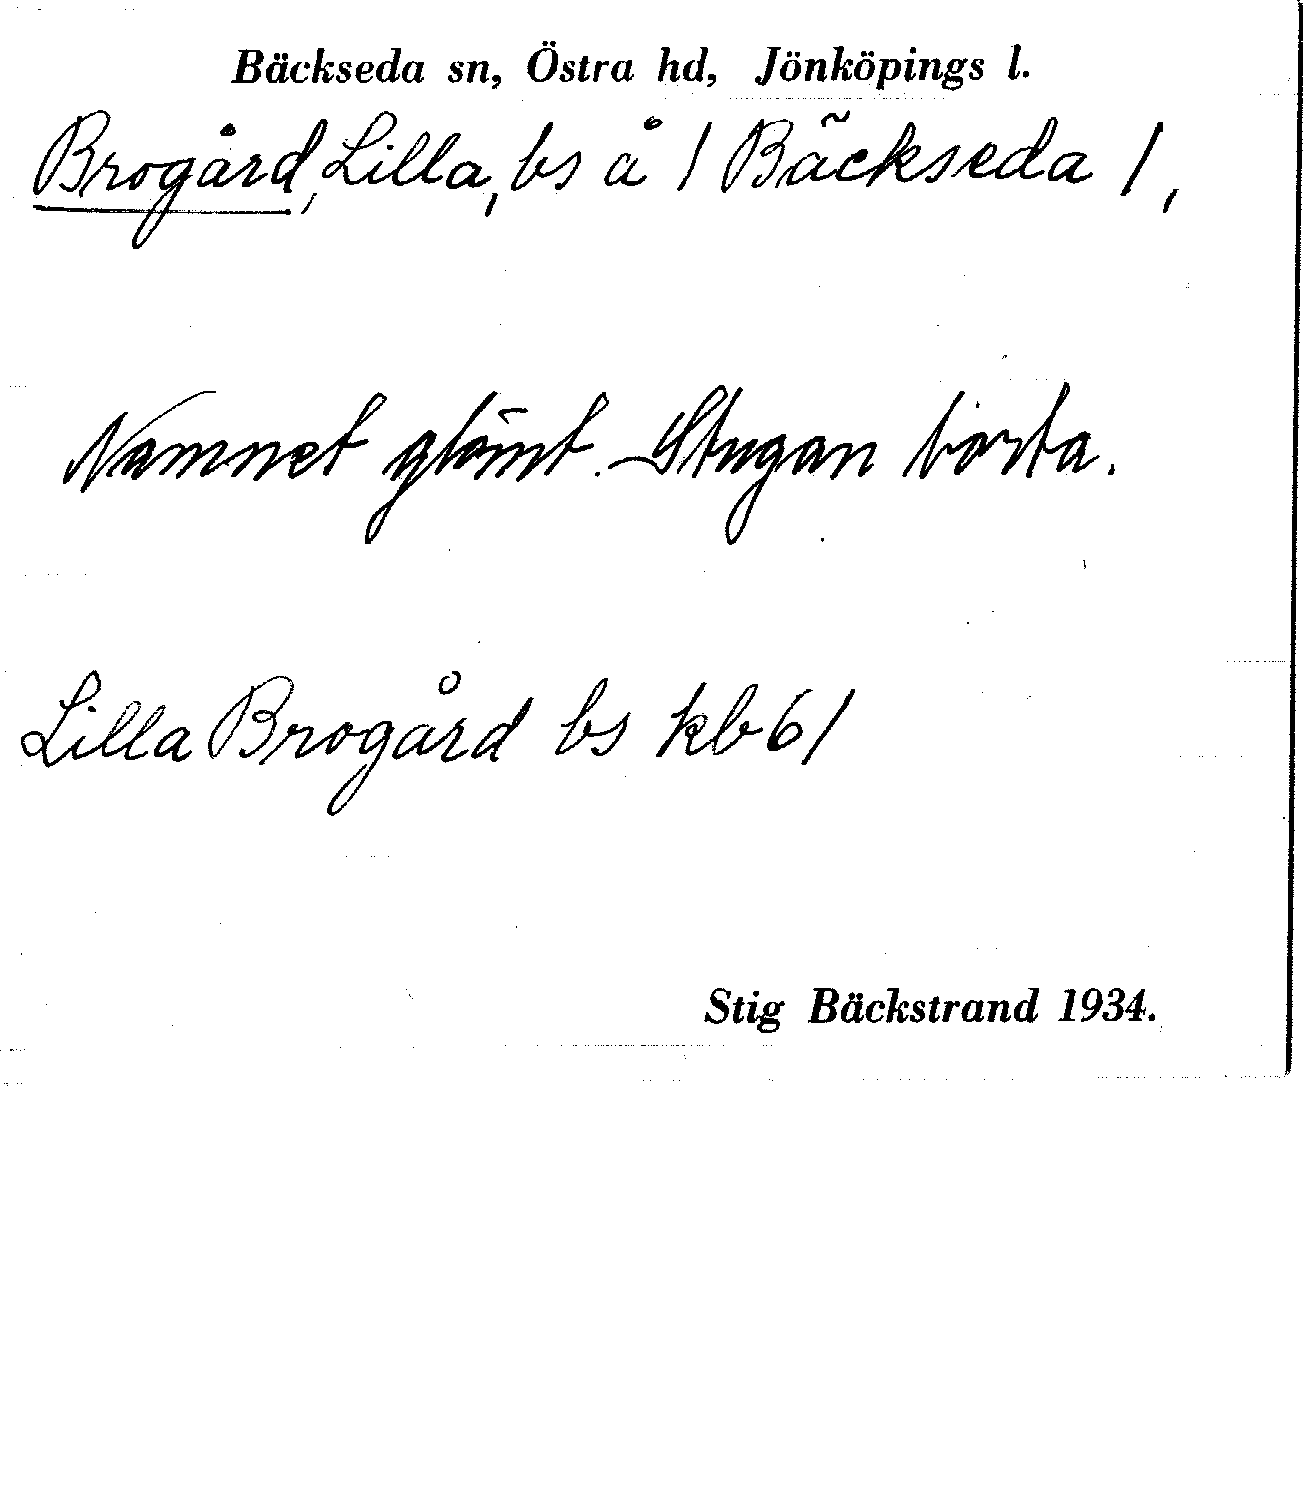 Bäckseda sn, Östra hd, Jönköpings l.
Brogård, Lilla, bs å 1 Bäckseda 1,
Namnet glömt. Stugan borta.
Lilla Brogård bs kb 61
Stig Bäckstrand 1934.